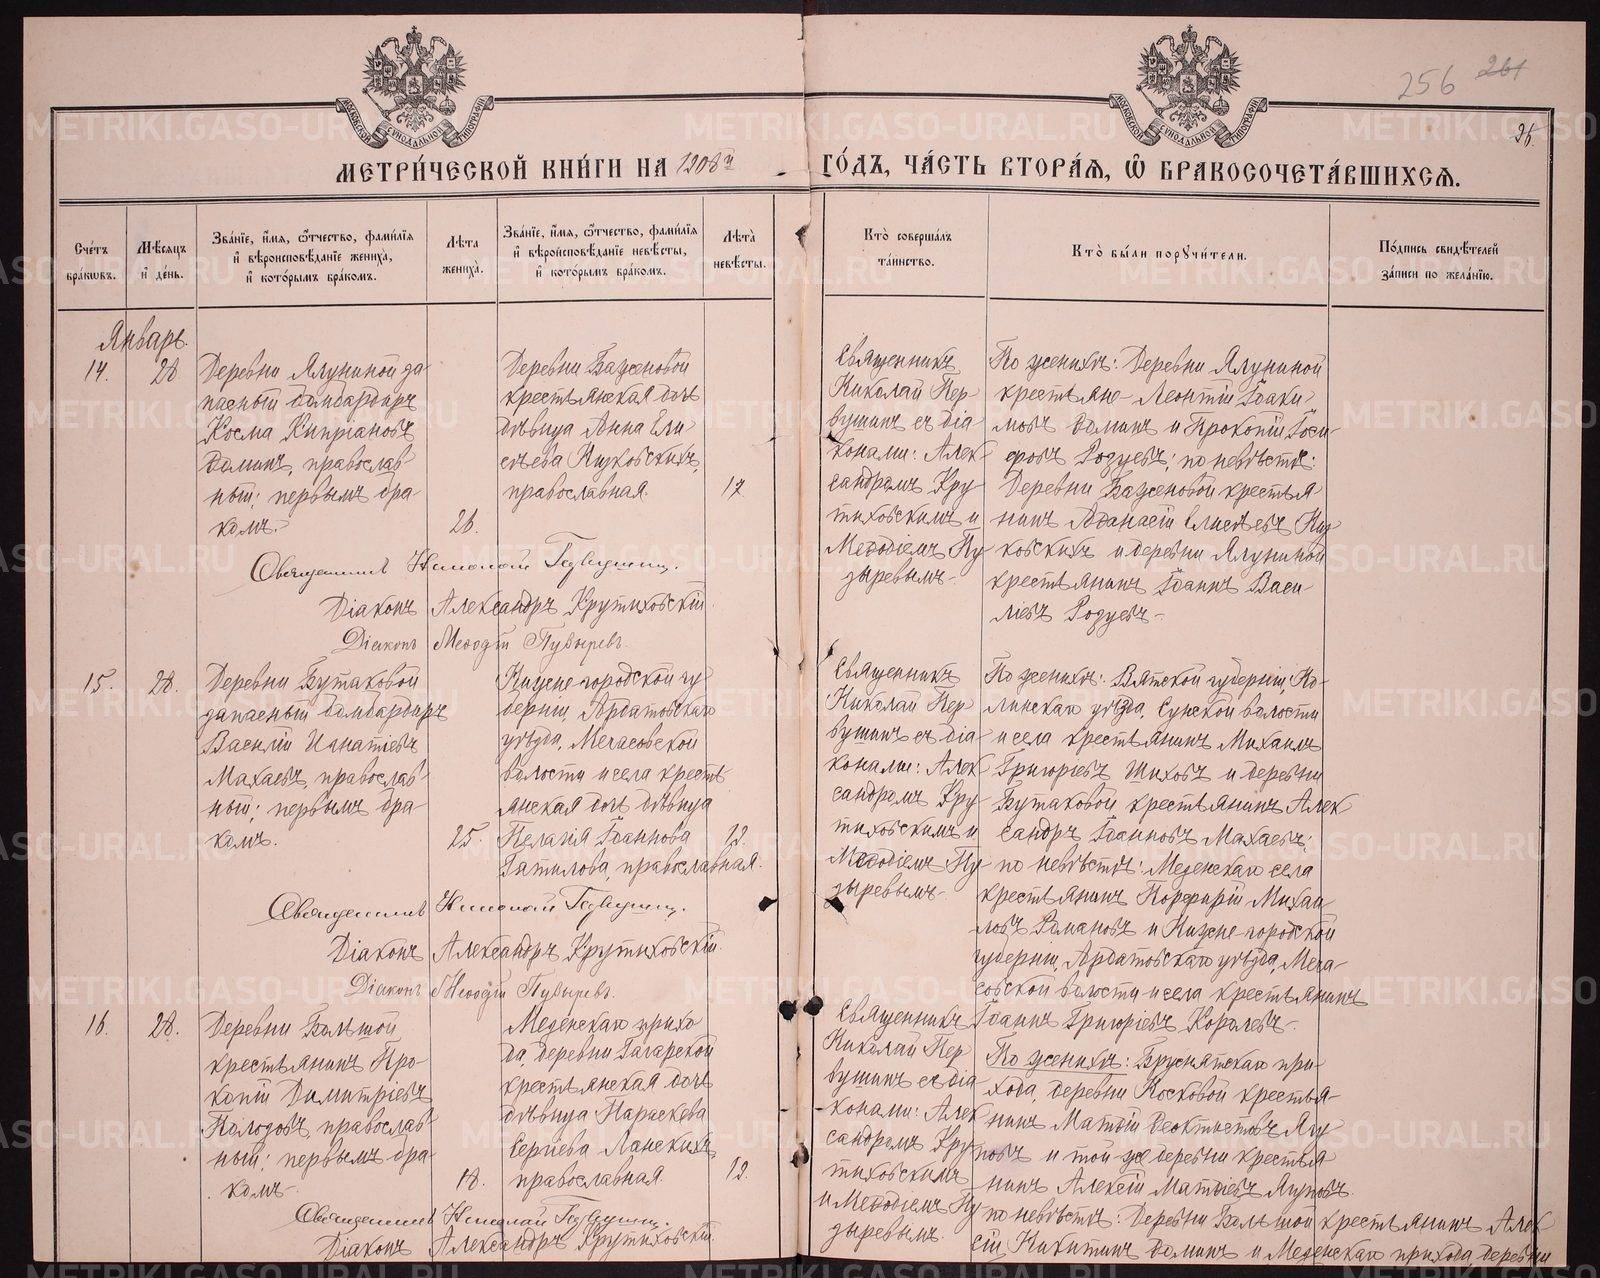 256 261
26.
МОСКОВСКОЙ СѴНОДАЛЬНОЙ ТИПОГРАФІИ
МОСКОВСКОЙ СѴНОДАЛЬНОЙ ТИПОГРАФІИ
МЕТРИ́ЧЕСКОЙ КНИ́ГИ НА 1908й ГО́ДЪ, ЧА́СТЬ ВТОРА́Я, Ѽ БРАКОСОЧЕТА́ВШИХСЯ.
Сче́тъ бра́кωвъ.
Мѣ́сяцъ и҆ де́нь.
Зва́нїе, и҆́мя, ѻ҆́тчество, фами́лїя и҆ вѣроисповѣ́данїе жениха̀, и҆ кото́рымъ бра́комъ.
Лѣ́та жениха̀.
Зва́нїе, и҆́мя, ѻ҆́тчество, фами́лїя и҆ вѣроисповѣ́данїе невѣ́сты, и҆ кото́рымъ бра́комъ.
Лѣ́та невѣ́сты.
Кто̀ соверша́лъ та́инство.
Кто̀ бы́ли порꙋчи́тели.
По́дпись свидѣ́телей за́писи по жела́нїю.
Январь.
14. 28
Деревни Ялуниной за-
пасный бомбардиръ
Косма Кипріановъ
Доминъ, православ-
ный; первымъ бра-
комъ.
26.
Деревни Баженовой
крестьянская дочь
дѣвица Анна Ели-
сѣева
православная.
17.
Священникъ
Николай Пер-
вушинъ съ діа-
конами: Алек-
сандромъ Кру-
тиховскимъ и
Меѳодіемъ Пу-
зыревымъ-
По женихѣ: Деревни Ялуниной
крестьяне Леонтій Іоаки-
мовъ Доминъ и Прокопій Іоси-
фовъ Родуевъ; по невѣстѣ:
Деревни Баженовой крестья-
нинъ Аѳанасій Елисѣевъ
и деревни Ялуниной
крестьянинъ Іоаннъ Васи-
ліевъ Родуевъ-
Священникъ Николай Первушинъ.
Діаконъ Александръ Крутиховскій.
Діаконъ Меѳодій Пузыревъ.
15. 28.
Деревни Бутаковой
запасный бомбардиръ
Василій Игнатіевъ
Махаевъ, православ-
ный; первымъ бра-
комъ.
25.
Нижне-городской гу-
берніи, Ардатовскаго
уѣзда, Мечасовской
волости и села кресть-
янская дочь дѣвица
Пелагія Іоаннова
православная.
Священникъ
Николай Пер-
вушинъ съ діа-
конами: Алек-
сандромъ Кру-
тиховскимъ и
Меѳодіемъ Пу-
зыревымъ-
По женихѣ: Вятской губерніи, Но-
линскаго уѣзда, Сунской волости
и села крестьянинъ Михаилъ
Григоріевъ Шиховъ и деревни
Бутаковой крестьянинъ Алек-
сандръ Іоанновъ Махаевъ;
по невѣстѣ: Меденскаго села
крестьянинъ Порфирій Михаи-
ловъ Романовъ и Нижне-городской
губерніи, Ардатовскаго уѣзда, Меча-
совской волости и села крестьянинъ
Іоаннъ Григоріевъ Королевъ-.
Священникъ Николай Первушинъ.
Діаконъ Александръ Крутиховскій.
Діаконъ Меѳодій Пузыревъ.
16. 28.
Деревни Большой
крестьянинъ Про-
копій Димитріевъ
Полодовъ, православ-
ный; первымъ бра-
комъ-
18.
Меденскаго прихо-
да, деревни Гагарской
крестьянская дочь
дѣвица Параскева
Сергіева Ланскихъ,
православная.
Священникъ
Николай Пер-
вушинъ съ діа-
конами: Алек-
сандромъ Кру-
тиховскимъ
и Меѳодіемъ Пу-
зыревымъ.
По женихѣ: Бруснятскаго при-
хода, деревни Носковой крестья-
нинъ Матѳій Ѳеоктистовъ Ялу-
новъ и той же деревни крестья-
нинъ Алексій Матѳіевъ Ялуновъ.
по невѣстѣ: Деревни Большой крестьянинъ Алек-
сій Никитинъ Доминъ и Меденскаго прихода, деревни
Священникъ Николай Первушинъ.
Діаконъ Александръ Крутиховскій.
METRIKI.GASO-URAL.RU